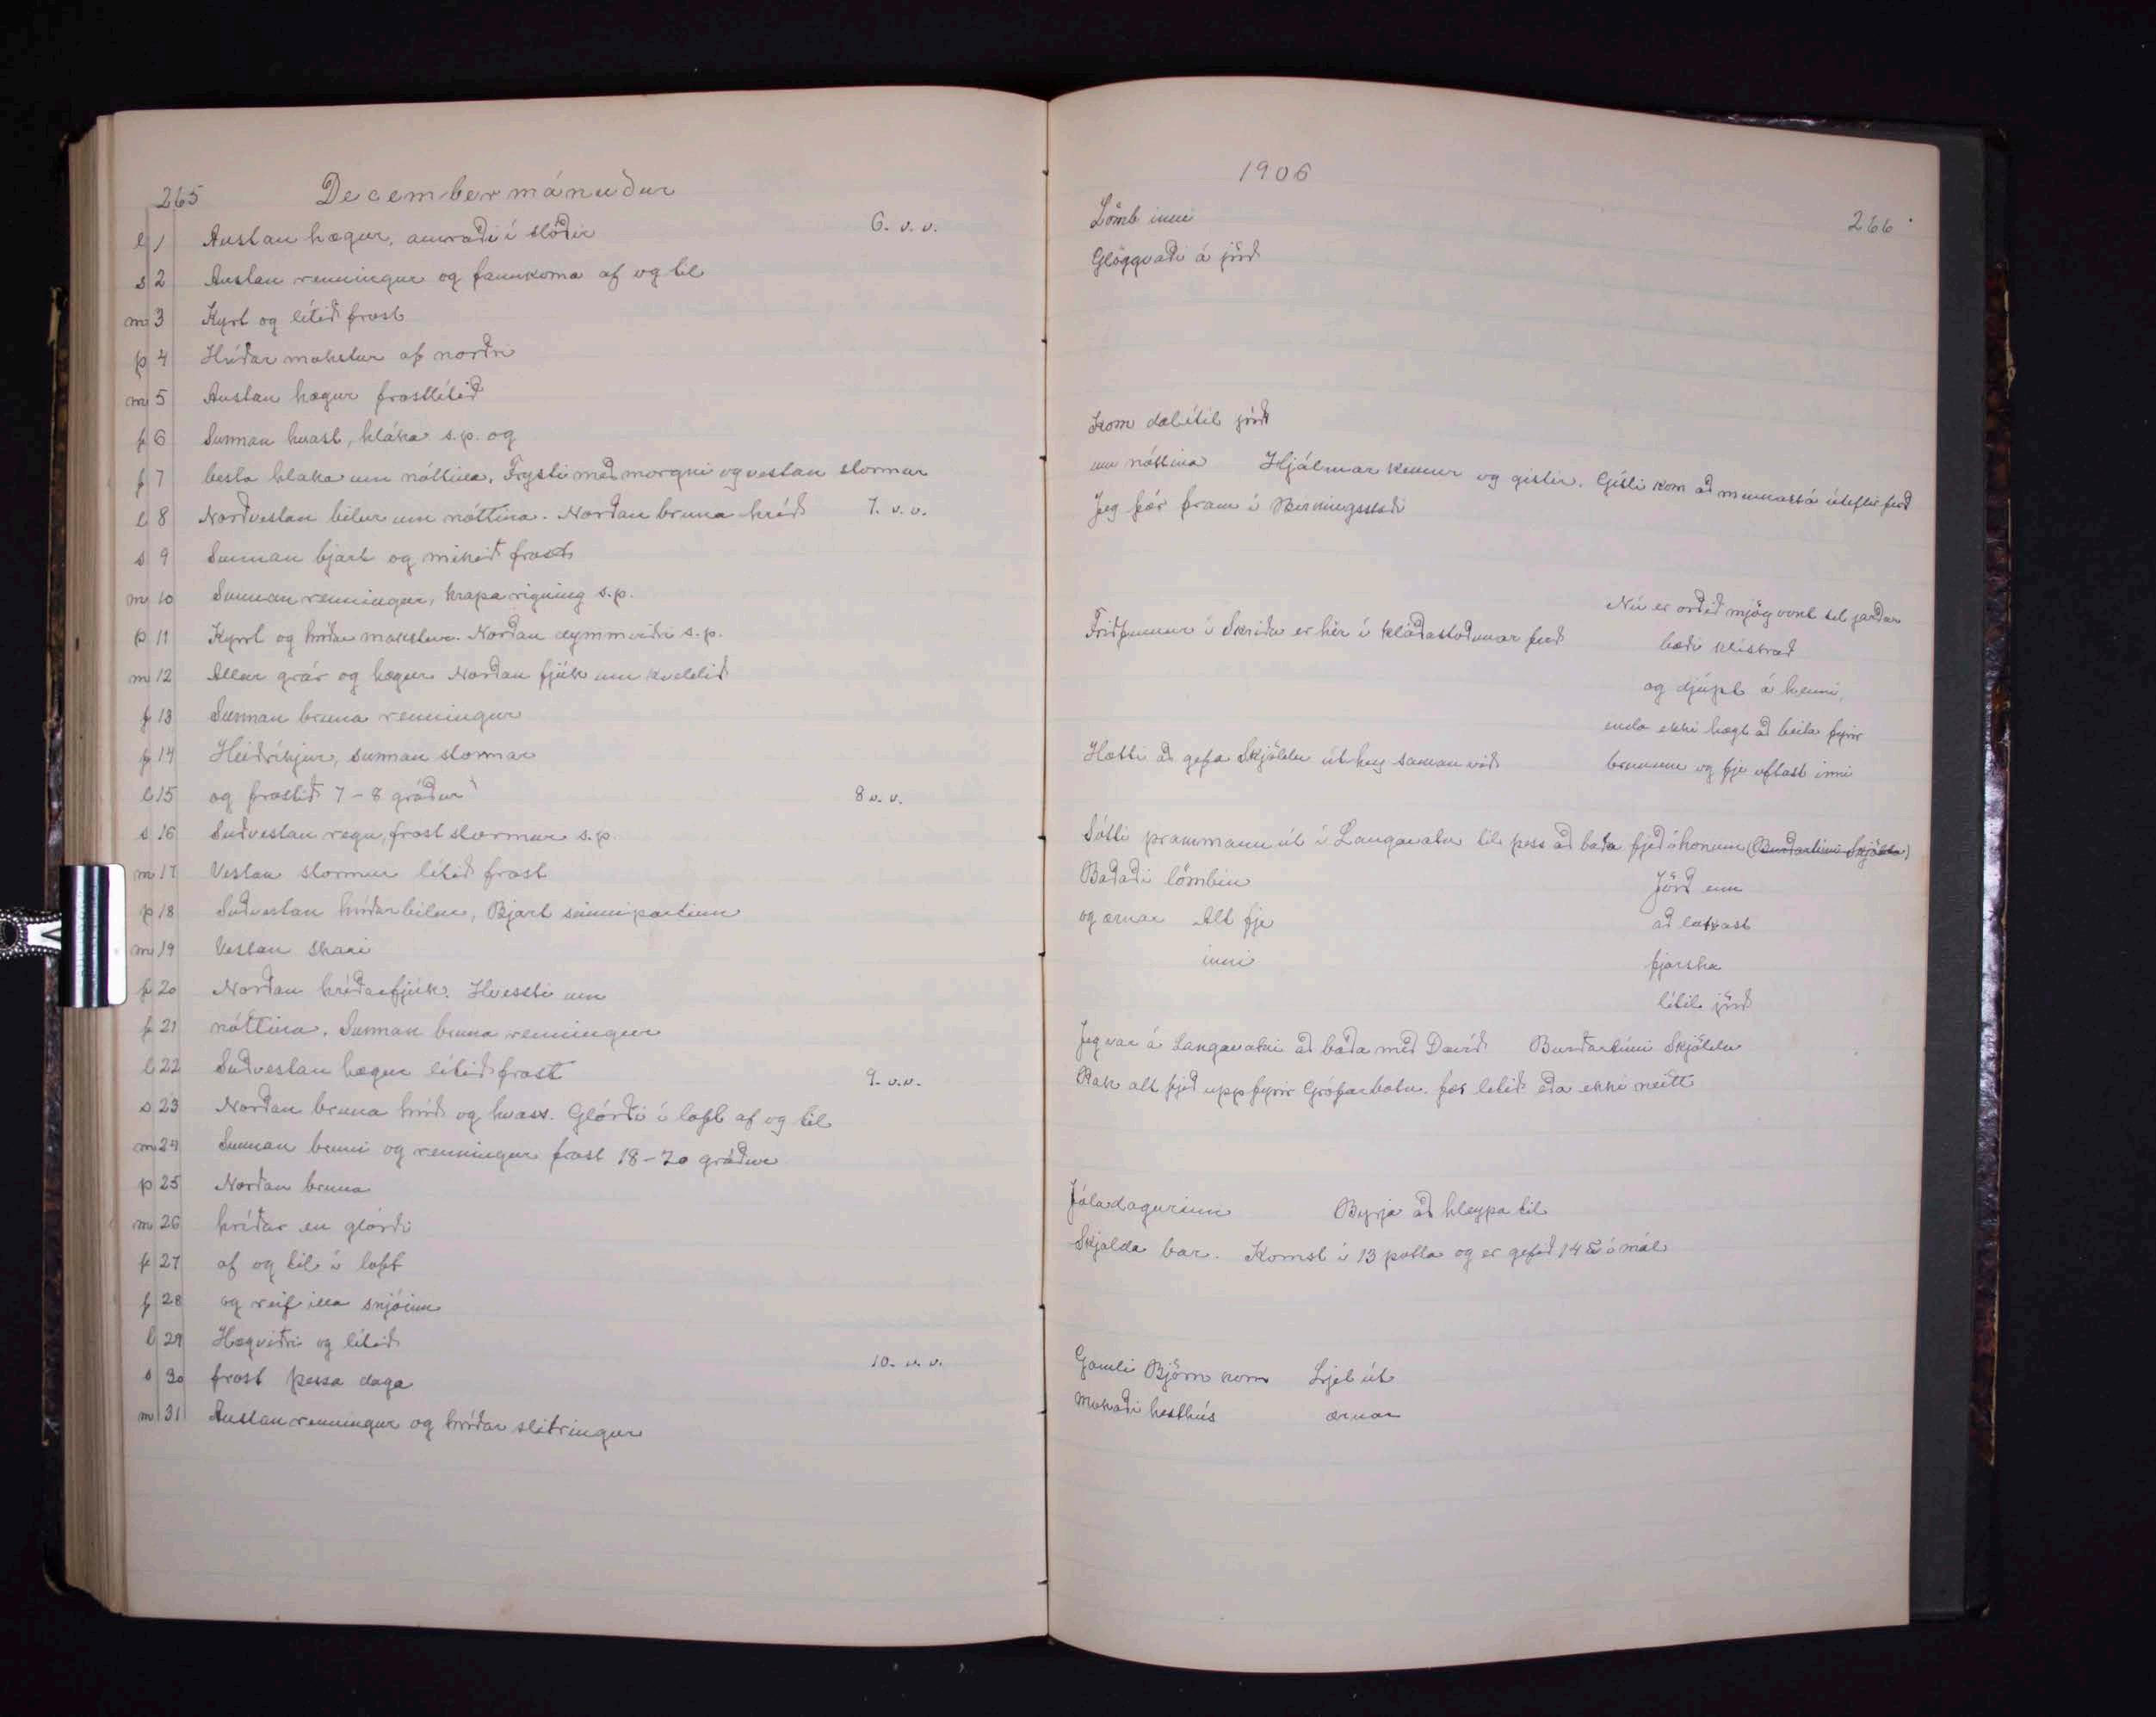 265 Decembermánuður
l 1 Austan hægur, aurraði í slóðir 6. v. v.
s 2 Austan renningur og fannkoma af og til
m 3 Kyrt og lítið frost
þ 4 Hríðar mokstur af norðri
m 5 Austan hægur frostlítið
f 6 Sunnan hvast, hláka s.p. og
f 7 besta hlaka um nóttina. Frysti með morgni og vestan stormur
l 8 Norðvestan bilur um nóttina. Norðan bruna hríð 7. v. v.
s 9 Sunnan bjart og mikið frost
m 10 Sunnan renningur, krapa rigning s.p.
þ 11 Kyrrt og hríðar mokstur. Norðan dymmviðri s.p.
m 12 Allur grár og hægur Norðan fjúk um kveldið
f 13 Sunnan bruna renningur
f 14 Heiðríkjur, sunnan stormar
l 15 og frostið 7-8 gráður 8 v. v.
s 16 Suðvestan regn, frost stormur s.p.
m 17 Vestan stormur lítið frost
þ 18 Suðvestan hríðarbilur, Bjart seinnipartinn
m 19 Vestan skari
f 20 Norðan hríðarfjúk. Hvessti um
f 21 nóttina. Sunnan bruna renningur
l 22 Suðvestan hægur lítið frost 9. v.v.
s 23 Norðan bruna hríð og hvass. Glórði í loft af og til
m 24 Sunnan bruni og renningur frost 18-20 gráður
þ 25 Norðan bruna
m 26 hríðar en glórði
f 27 af og til í loft
f 28 og reif illa snjóinn
l 29 Hægviðri og lítið
s 30 frost þessa daga 10. v. v.
m 31 Austan renningur og hríðar slitringur
1906
266
Lömb inni
Glöggvaði á jörð
Kom dálítil jörð
um nóttina Hjálmar kemur og gistir. Gísli kom að
Jeg fór fram í Birningsstaði
Friðfinnur í Skriðu er hér í kláðaskoðunar ferð
Nú er orðið mjög vont til jarðar
bæði klistrað
og djúpt á henni,
enda ekki hægt að beita fyrir
brunum og fje oftast inni
Hætti að gefa Skjöldu úthey saman við
Sótti prammann út í Langavatn til þess að baða fjeð í honum (Burðartími Skjöldu)
Baðaði lömbin
og ærnar Alt fje
inni
Jörð enn
að
fjarska
lítil jörð
Jeg var á Langavatni að baða með Davíð Burðartími Skjöldu
Rak alt fjeð upp fyrir Grófarbotn. fór lítið eða ekki neitt
Jóladagurinn Byrja að hleypa til
Skjalda bar. Komst í 13 potta og er gefið 14 í mál
Gamli Björn kom Ljet út
Mokaði hesthús ærnar